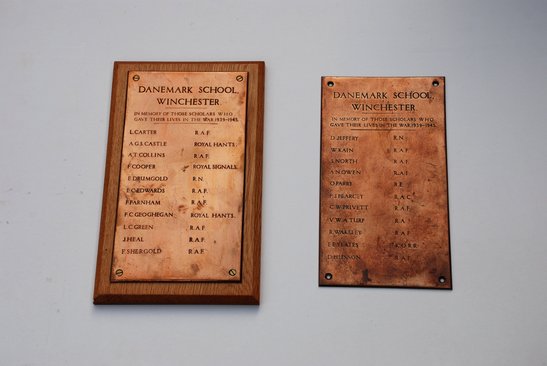 DANEMARK SCHOOL,
WINCHESTER.
IN MEMORY OF THOSE SCHOLARS WHO
GAVE THEIR LIVES IN THE WAR 1939-1945.
L.CARTER R.A.F.
A.G.S.CASTLE ROYAL HANTS.
A.T.COLLINS R.A.F.
F.COOPER ROYAL SIGNALS.
E.DRUMGOLD R.N.
E.C.EDWARDS R.A.F.
F.FARNHAM R.A.F.
F.C.GEOGHEGAN ROYAL HANTS.
L.C.GREEN R.A.F.
J.HEAL R.A.F.
F.SHERGOLD R.A.F.
DANEMARK SCHOOL,
WINCHESTER.
IN MEMORY OF THOSE SCHOLARS WHO
GAVE THEIR LIVES IN THE WAR 1939-1945.
D.JEFFERY R.N.
W.KAIN R.A.F.
L.NORTH R.A.F.
A.N.OWEN R.A.F.
O.PARRY R.E.
P.J.PEARCEY R.A.C.
C.W.PRIVETT R.A.F.
V.W.A.TURP R.A.F.
R.WAKELEY R.A.F.
K.O.R.R.
R.A.F.